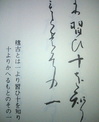 習ひ十を知
もとのその一
稽古とは一より習ひ十を知り
十よりかへるもとのその一